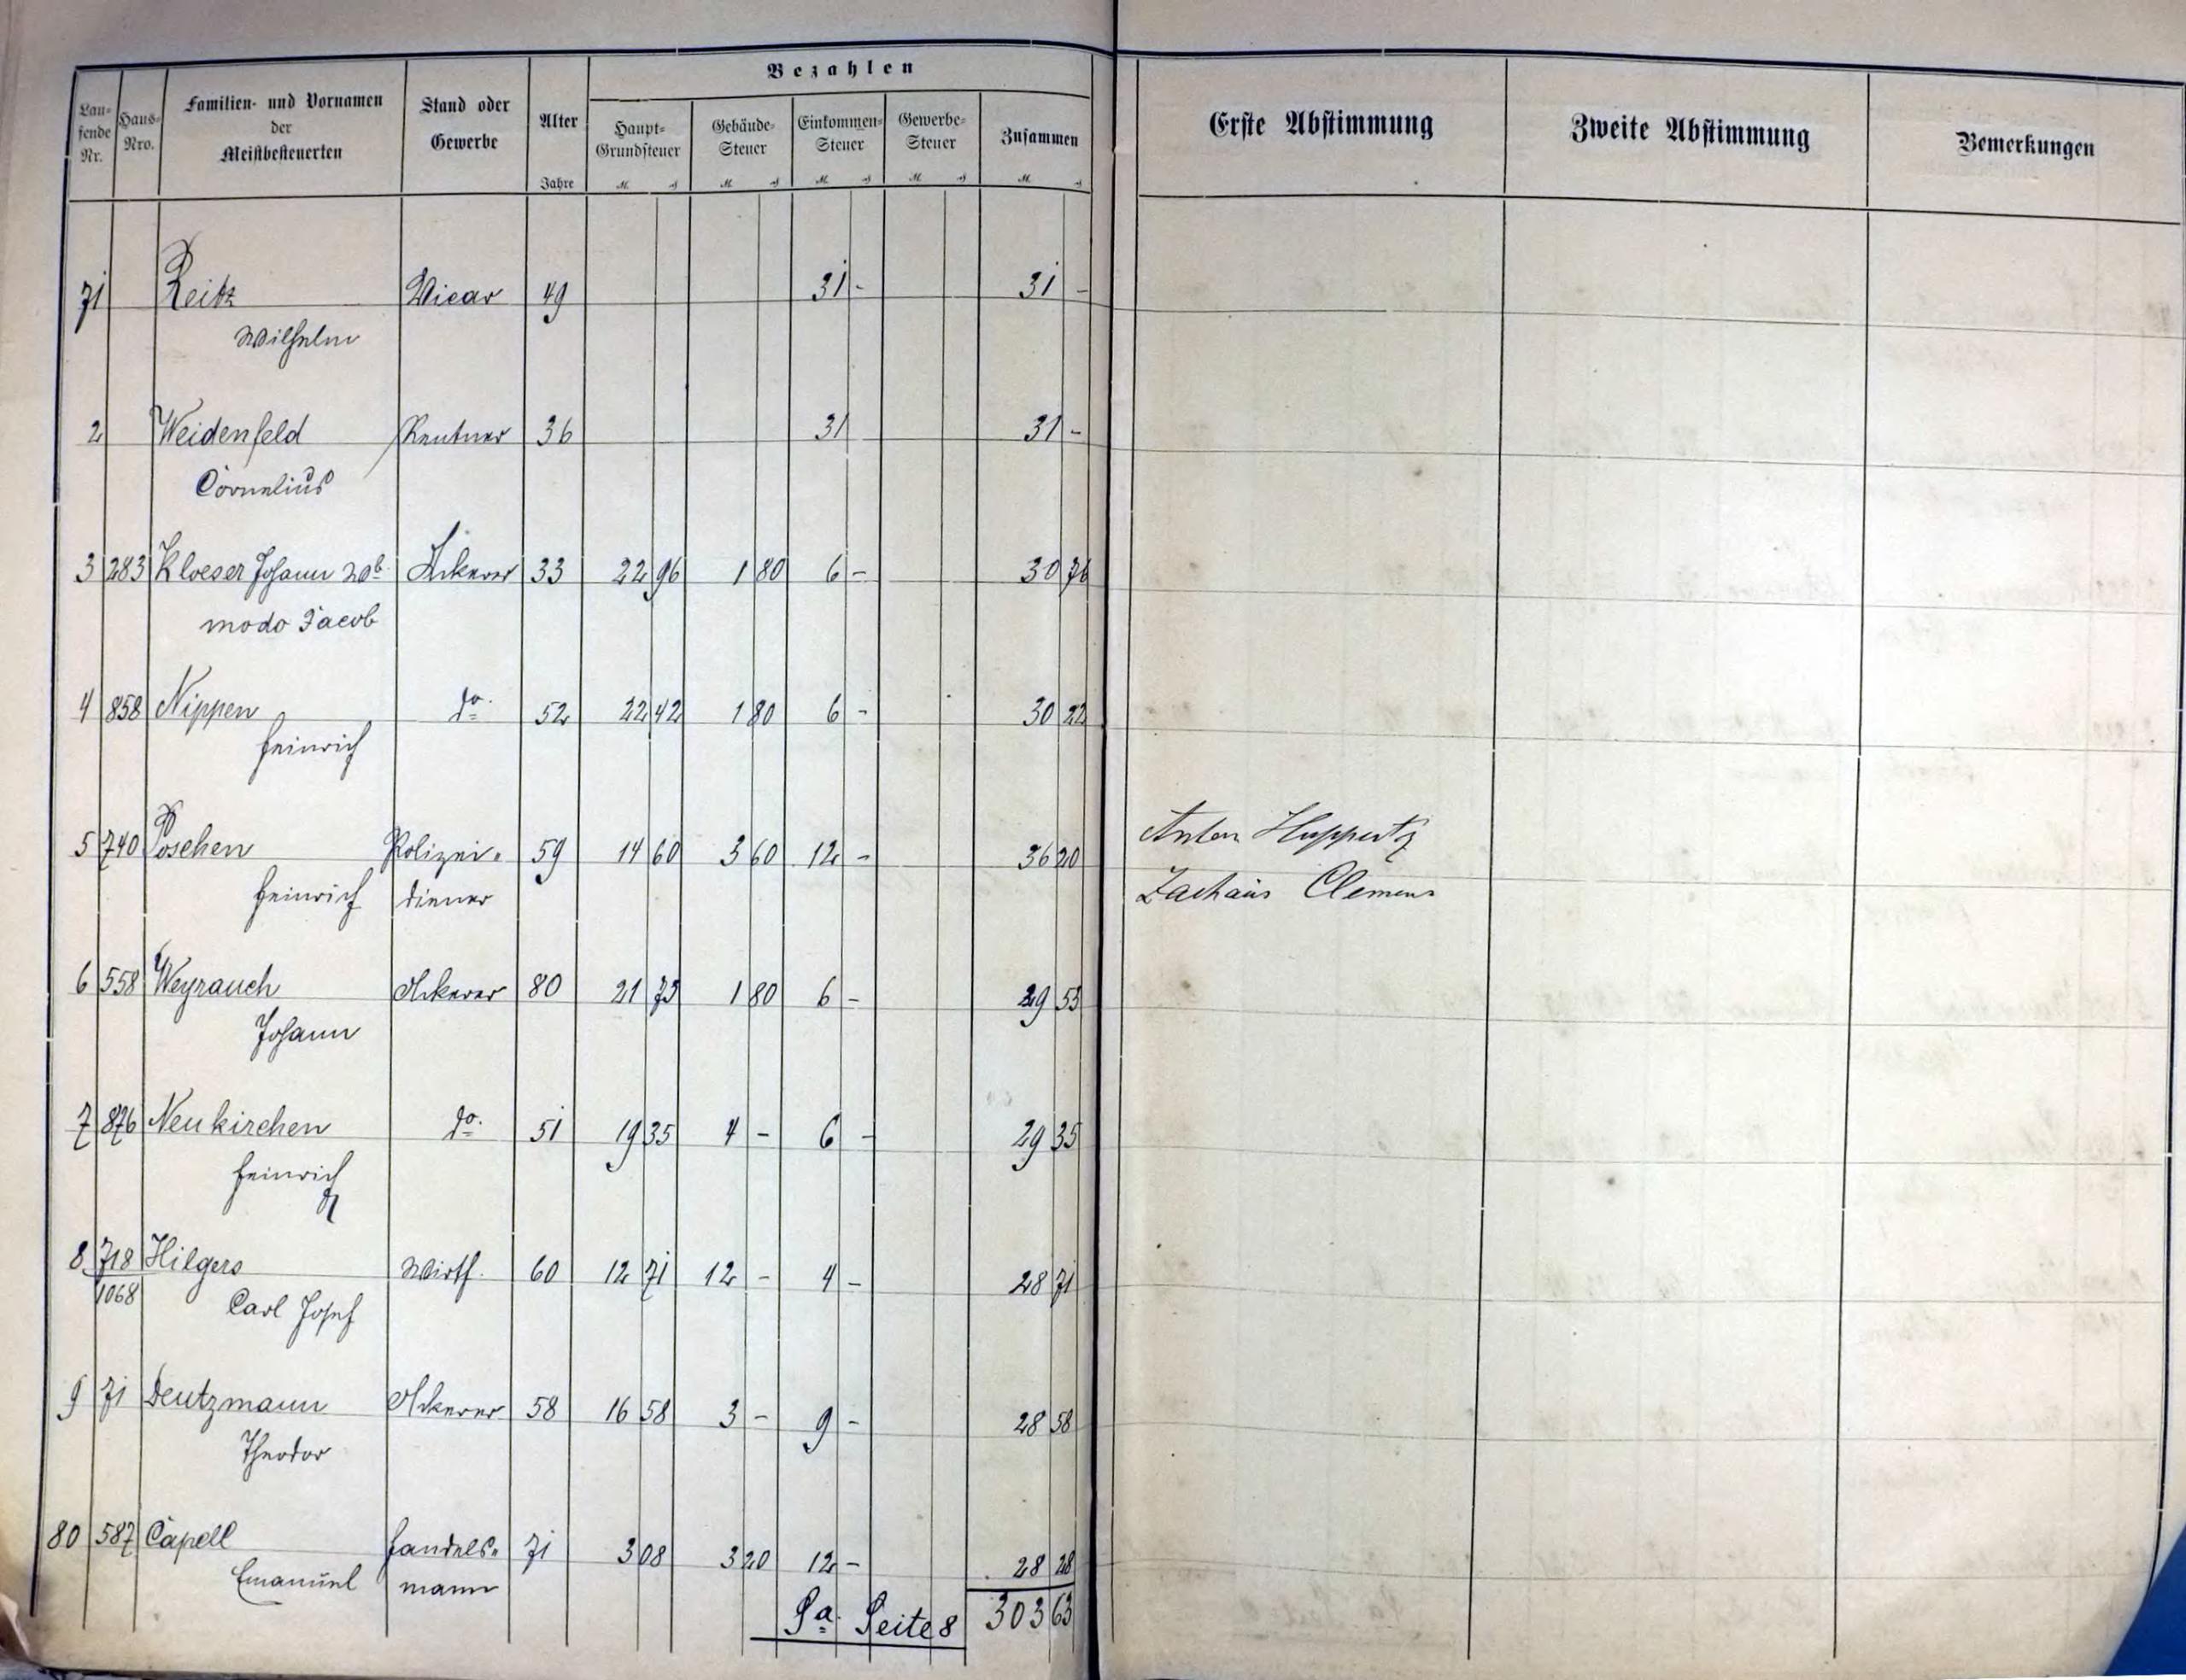 Bezahlen
Lau-
fende
Nr.
Haus-
Nro.
Familien- und Vornamen
der
Meistbesteuerten
Stand oder
Gewerbe
Alter
Jahre
Haupt-
Grundsteuer
Gebäude-
Steuer
Einkommen-
Steuer
Gewerbe-
Steuer
Zusammen
Erste Abstimmung
Zweite Abstimmung
Bemerkungen
71 Reitz Vicar 49 31 - 31 -
Wilhelm
2 Weidenfeld Rentner 36 31 31 -
Cornelius
3 283 Kloeser Johann Ackerer 33 22 96 1 80 6 - 30 76
modo Jacob
4 858 Nippen do. 52 22 42 1 80 6 - 30 22
Heinrich
5 740 Poschen Polizei- 59 14 60 3 60 12 - 36 20
Heinrich diener
Anton Huppertz
Zachäus Clemens
6 558 Weyrauch Ackerer 80 21 73 1 80 6 - 29 53
Johann
7 876 Neukirchen do. 51 19 35 4 - 6 - 29 35
Heinrich
8 718 Hilgers Wirth 60 12 71 12 - 4 - 28 71
1068 Carl Josef
9 71 Deutzmann Ackerer 58 16 58 3 - 9 - 28 58
Theodor
80 587 Capell Handels- 71 3 08 3 20 12 - 28 28
Emanuel mann
Sa. Seite 8 303 63